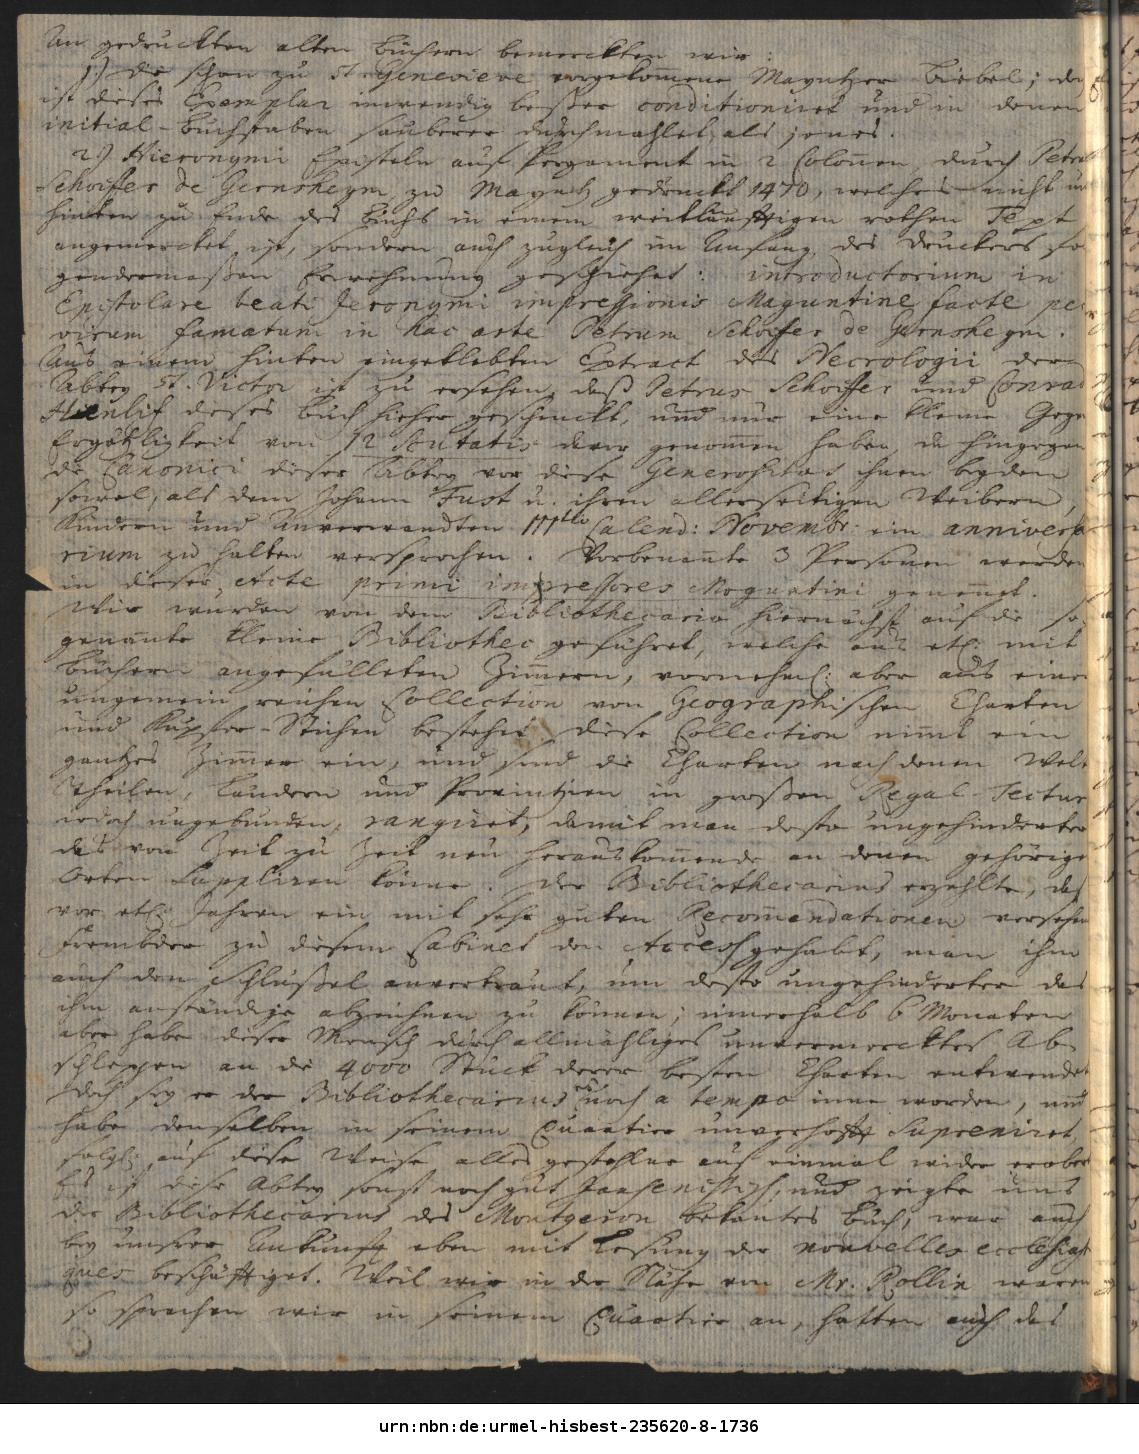 An gedruckten alten Büchern bemerckten wir
1.) Die schon zu St. Genevieve vorgekom̄ene Mayntzer Biebel; doch
ist dieses Exemplar inwendig beßer conditioniret und in denen
initial-Buchstaben sauberer durchmahlet, als jenes.
2.) Hieronymi Episteln auf Pergament in 2 Colonen, durch Petrum
Schoiffer de Gernsheym zu Mayntz gedruckt 1470, welches nicht nur
hinten zu Ende des Buchs in einem weitläufftigen rothen Text
angemercket ist, sondern auch zugleich im Anfang des Druckers fol-
gendermaßen Erwehnung geschiehet: introductorium in
Epistolare beati Jeronymi impressionis Maguntine facte per
virum famatum in hac arte Petrum Schoiffer de Gernsheym.
Aus einem hinten eingeklebten Extract des Necrologii der
Abtey St. Victor ist zu ersehen, daß Petrus Schoiffer und Conrad
Henlif dieses Buch hieher geschenckt, und nur eine kleine Gegen
Ergötzligkeit von 12 scutatis davor genom̄en haben, da hingegen
die Canonici dieser Abtey vor diese Generositaet ihnen beyden
sowol, als dem Johann Fust u. ihren allerseitigen Weibern,
Kindern und Anverwandten IIItio Calend: Novembr: ein anniversa-
rium zu halten versprochen. Vorbenan̄te 3 Personen werden
in dieser Acte primi impressores Moguntini genen̄et.
Wir wurden von dem Bibliothecario hiernächst auf die so
genan̄te kleine Bibliothec geführet, welche aus etl: mit
Büchern angefülleten Zim̄ern, vornehml: aber aus einer
ungemein reichen Collection von Geographischen Charten
und Kupfer-Stichen bestehet. Diese Collection nim̄t ein
gantzes Zim̄er ein, und sind die Charten nach denen Welt
Theilen, Ländern und Provintzien in großen Regal-
jedoch ungebunden, rangiret, damit man desto ungehinderter
das von Zeit zu Zeit neu herauskom̄ende an denen gehörigen
Orten suppliren könne. Der Bibliothecarius erzehlte, daß
vor etl: Jahren ein mit sehr guten Recom̄endationen versehener
Frembder zu diesem Cabinet den Access gehabt, man ihm
auch den Schlüßel anvertraut, um desto ungehinderter das
ihm anständige abzeichnen zu können; innerhalb 6 Monaten
aber habe dieser Mensch durch allmähliges unvermercktes Ab-
schleppen an die 4000 Stück derer besten Charten entwendet
Doch sey er der Bibliothecarius noch a tempo inne worden, und
habe denselben in seinem Quartier unverhofft supreniret,
folgl: auf diese Weise alles gestohlne auf einmal wider erobert
Es ist diese Abtey sonst noch gut Jansenistisch, und zeigte uns
der Bibliothecarius des Montgeron bekantes Buch, war auch
bey unsrer Ankunfft eben mit Lesung der nouvelles ecclesiasti-
ques beschäfftiget. Weil wir in der Nähe von Mr. Rollin waren
so sprachen wir in seinem Quartier an, hatten auch das
urn:nbn:de:urmel-hisbest-235620-8-1736